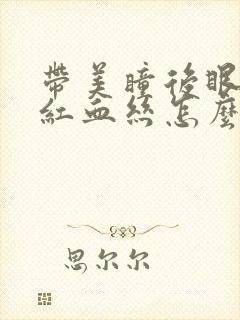 帶美瞳後眼
紅血絲怎麼
思尔尔